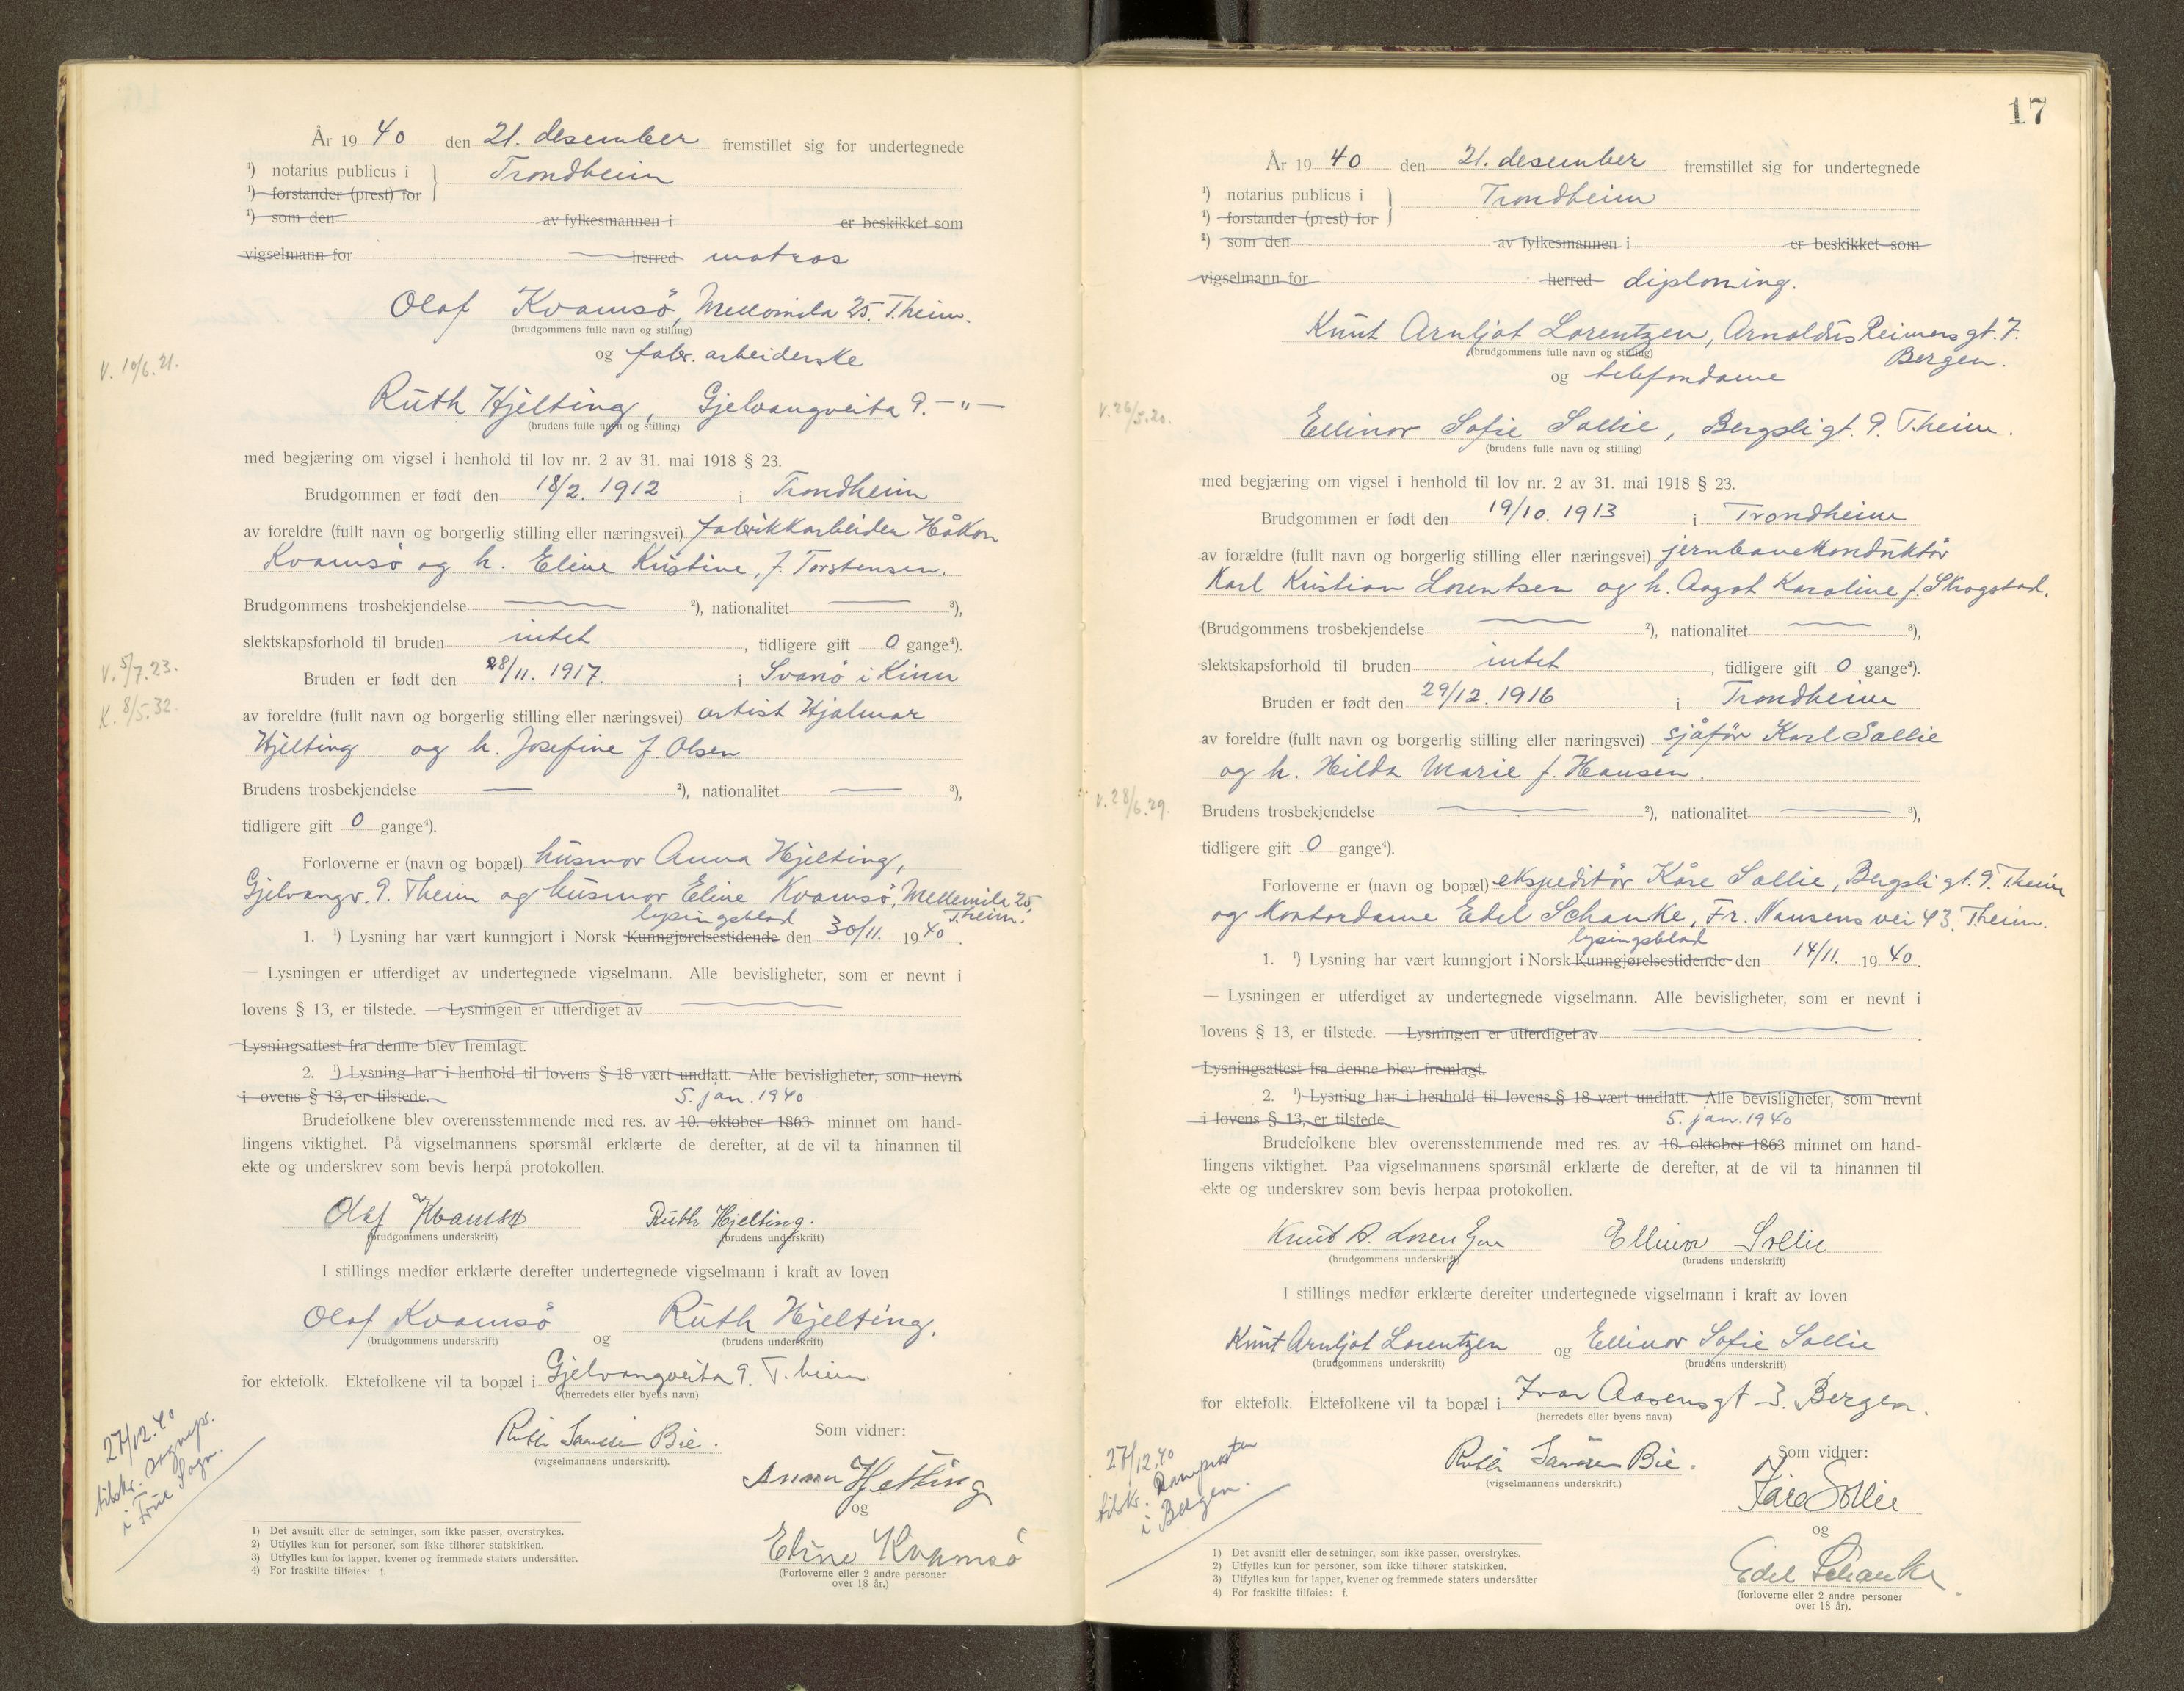 År 1940 den 21. desember fremstillet sig for undertegnede
¹) notarius publicus i } Trondheim
¹) forstander (prest) for
¹) som den av fylkesmannen i er beskikket som
vigselmann for herred matros
Olaf Kvamsö, Mellomila 25. T.heim.
(brudgommens fulle navn og stilling)
og fabr. arbeiderske
V. 10/6.21.
Ruth Hjelting, Gjelvangveita 9. -"-
(brudens fulle navn og stilling)
med begjæring om vigsel i henhold til lov nr. 2 av 31. mai 1918 § 23.
Brudgommen er født den 18/2. 1912 i Trondheim
av foreldre (fullt navn og borgerlig stilling eller næringsvei) fabrikkarbeider Håkon
Kvamsö og h. Eline Kristine, f. Torstensen.
Brudgommens trosbekjendelse — ²), nationalitet — ³),
slektskapsforhold til bruden intet, tidligere gift 0 gange⁴).
V. 5/7.23.
Bruden er født den 28/11. 1917. i Svanö i Kinn
K. 8/5.32.
av foreldre (fullt navn og borgerlig stilling eller næringsvei) artist Hjalmar
Hjelting og h. Josefine f. Olsen
Brudens trosbekjendelse — ²), nationalitet — ³),
tidligere gift 0 gange⁴).
Forloverne er (navn og bopæl) husmor Anna Hjelting,
Gjelvangv. 9. Theim og husmor Eline Kvamsö, Mellemila 25,
T.heim.
lysingsblad
1. ¹) Lysning har vært kunngjort i Norsk Kunngjørelsestidende den 30/11. 1940.
— Lysningen er utferdiget av undertegnede vigselmann. Alle bevisligheter, som er nevnt i
lovens § 13, er tilstede. — Lysningen er utferdiget av
Lysningsattest fra denne blev fremlagt.
2. ¹) Lysning har i henhold til lovens § 18 vært undlatt. Alle bevisligheter, som nevnt
i ovens § 13, er tilstede. 5. jan. 1940
Brudefolkene blev overensstemmende med res. av 10. oktober 1863 minnet om hand-
lingens viktighet. På vigselmannens spørsmål erklærte de derefter, at de vil ta hinannen til
ekte og underskrev som bevis herpå protokollen.
Olaf Kvamsø Ruth Hjelting.
(brudgommens underskrift) (brudens underskrift)
I stillings medfør erklærte derefter undertegnede vigselmann i kraft av loven
Olaf Kvamsö og Ruth Hjelting.
(brudgommens underskrift) (brudens underskrift)
for ektefolk. Ektefolkene vil ta bopæl i Gjelvangveita 9. T.heim.
(herredets eller byens navn)
27/12.40
tilskr. sognepr.
i
Sogn.
Ruth Bie.
(vigselmannens underskrift).
Som vidner:
Anna Hjelting
og
Eline Kvamsö
(Forloverne eller 2 andre personer
over 18 år.)
1) Det avsnitt eller de setninger, som ikke passer, overstrykes.
2) Utfylles kun for personer, som ikke tilhører statskirken.
3) Utfylles kun for lapper, kvener og fremmede staters undersåtter.
4) For fraskilte tilføies: f.
17
År 1940 den 21. desember fremstillet sig for undertegnede
¹) notarius publicus i } Trondheim
¹) forstander (prest) for
¹) som den av fylkesmannen i er beskikket som
vigselmann for herred diploming.
Knut Arnljot Lorentzen, Arnoldus Reimersgt. 7.
(brudgommens fulle navn og stilling) Bergen.
og telefondame
V. 26/5.20.
Ellinor Sofie Sollie, Bergsligt. 9. T.heim.
(brudens fulle navn og stilling)
med begjæring om vigsel i henhold til lov nr. 2 av 31. mai 1918 § 23.
Brudgommen er født den 19/10. 1913 i Trondheim
av forældre (fullt navn og borgerlig stilling eller næringsvei) jernbanekonduktör
Karl Kristian Lorentsen og h. Aagot Karoline f. Skogstad.
(Brudgommens trosbekjendelse — ²), nationalitet — ³),
slektskapsforhold til bruden intet, tidligere gift 0 gange⁴).
Bruden er født den 29/12. 1916 i Trondheim
av foreldre (fullt navn og borgerlig stilling eller næringsvei) sjåför Karl Sollie
og h. Hilda Marie f. Hansen.
V. 28/6.29.
Brudens trosbekjendelse — ²), nationalitet — ³),
tidligere gift 0 gange⁴).
Forloverne er (navn og bopæl) ekspeditör Kåre Sollie, Bergsligt. 9. T.heim
og kontordame Edel Schanke, Fr. Nansens vei 43. T.heim.
lysingsblad
1. ¹) Lysning har vært kunngjort i Norsk Kunngjørelsestidende den 14/11. 1940.
— Lysningen er utferdiget av undertegnede vigselmann. Alle bevisligheter, som er nevnt i
lovens § 13, er tilstede. — Lysningen er utferdiget av
Lysningsattest fra denne blev fremlagt.
2. ¹) Lysning har i henhold til lovens § 18 vært undlatt. Alle bevisligheter, som nevnt
i lovens § 13, er tilstede. 5. jan. 1940
Brudefolkene blev overensstemmende med res. av 10. oktober 1863 minnet om hand-
lingens viktighet. Paa vigselmannens spørsmål erklærte de derefter, at de vil ta hinannen til
ekte og underskrev som bevis herpaa protokollen.
Knut A. Lorentzen Ellinor Sollie
(brudgommens underskrift) (brudens underskrift)
I stillings medfør erklærte derefter undertegnede vigselmann i kraft av loven
Knut Arnljot Lorentzen og Ellinor Sofie Sollie
(brudgommens underskrift) (brudens underskrift)
for ektefolk. Ektefolkene vil ta bopæl i Ivar Aasensgt 3. Bergen.
(herredets eller byens navn)
27/12.40
tilskr. Domprosten
i Bergen.
Ruth Bie.
(vigselmannens underskrift.)
Som vidner:
Kåre Sollie
og
Edel Schanke.
(forloverne eller 2 andre personer
over 18 år).
1) Det avsnitt eller de setninger, som ikke passer, overstrykes.
2) Utfylles kun for personer, som ikke tilhører statskirken.
3) Utfylles kun for lapper, kvener og fremmede staters undersåtter
4) For fraskilte tilføies: f.